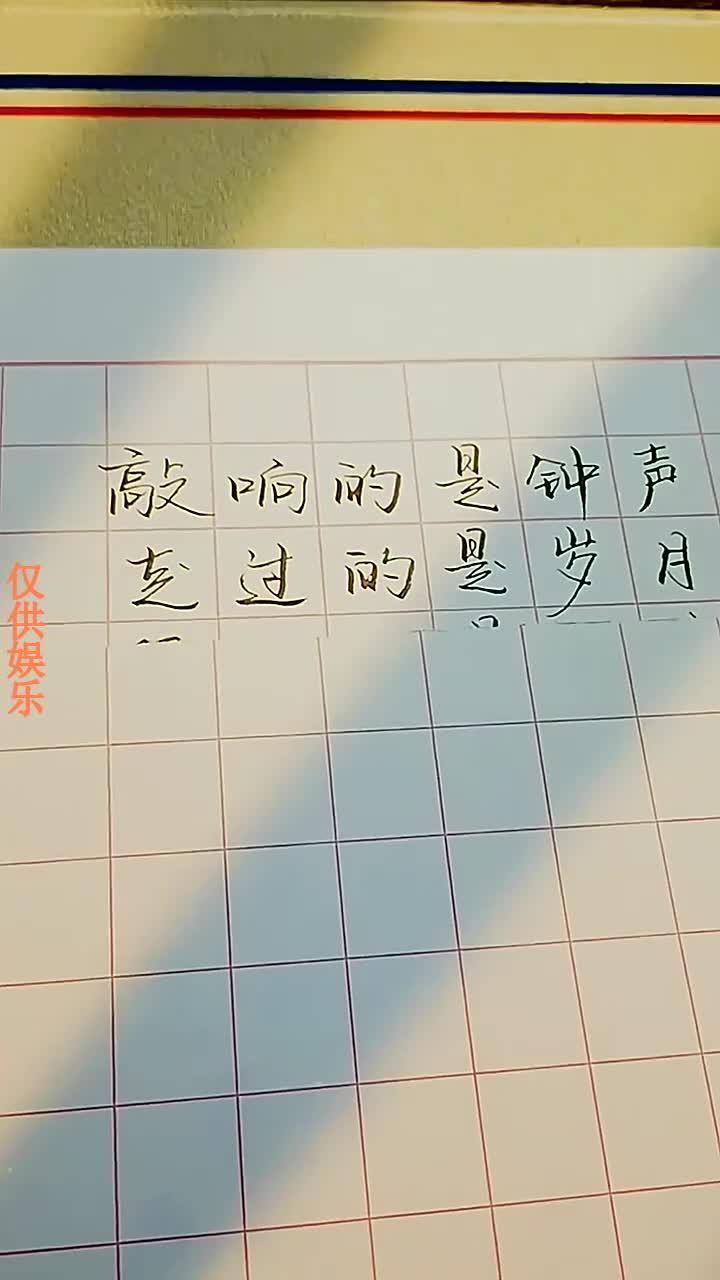 敲响的是钟声
走过的是岁月
仅供娱乐